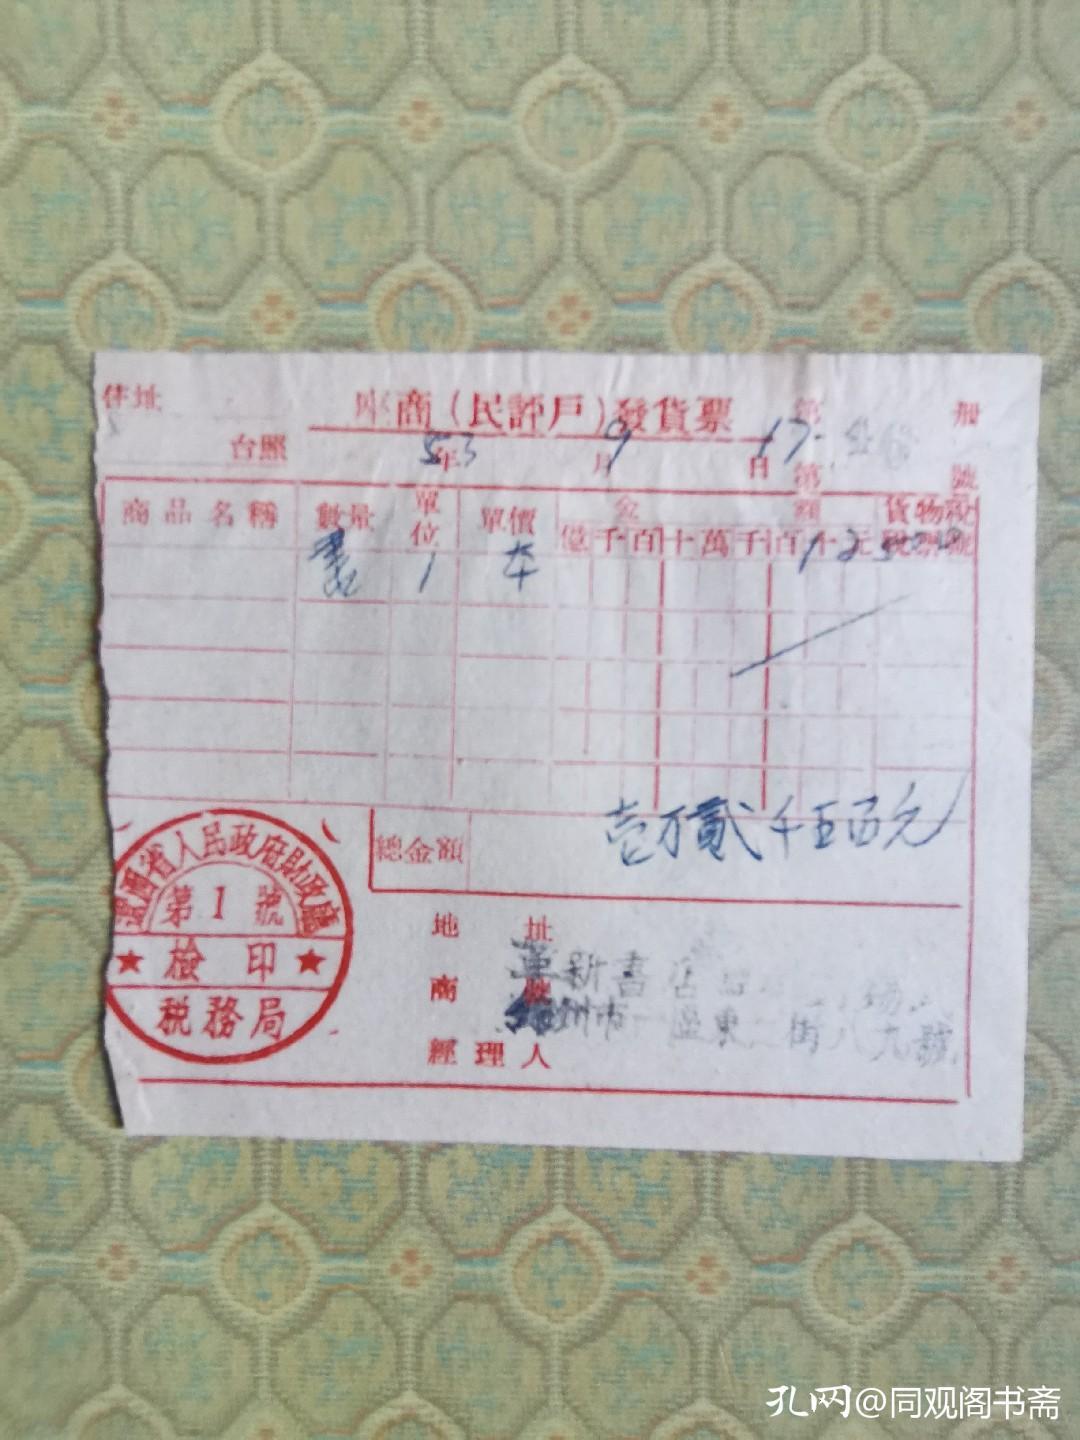 住址
座商(民評戶)發貨票
第 册
台照 53年 9月 17日 第 號
商品名稱 數量 單位 單價 金額 貨物稅
億千百十萬千百十元 稅票號
書 1 本 12500
總金額 壹万貳千五百元
省人民政府財政廳
第1號
★檢印★
稅務局
地址
商號 革新書店
州市 區東 街八九號
經理人
孔网@同观阁书斋